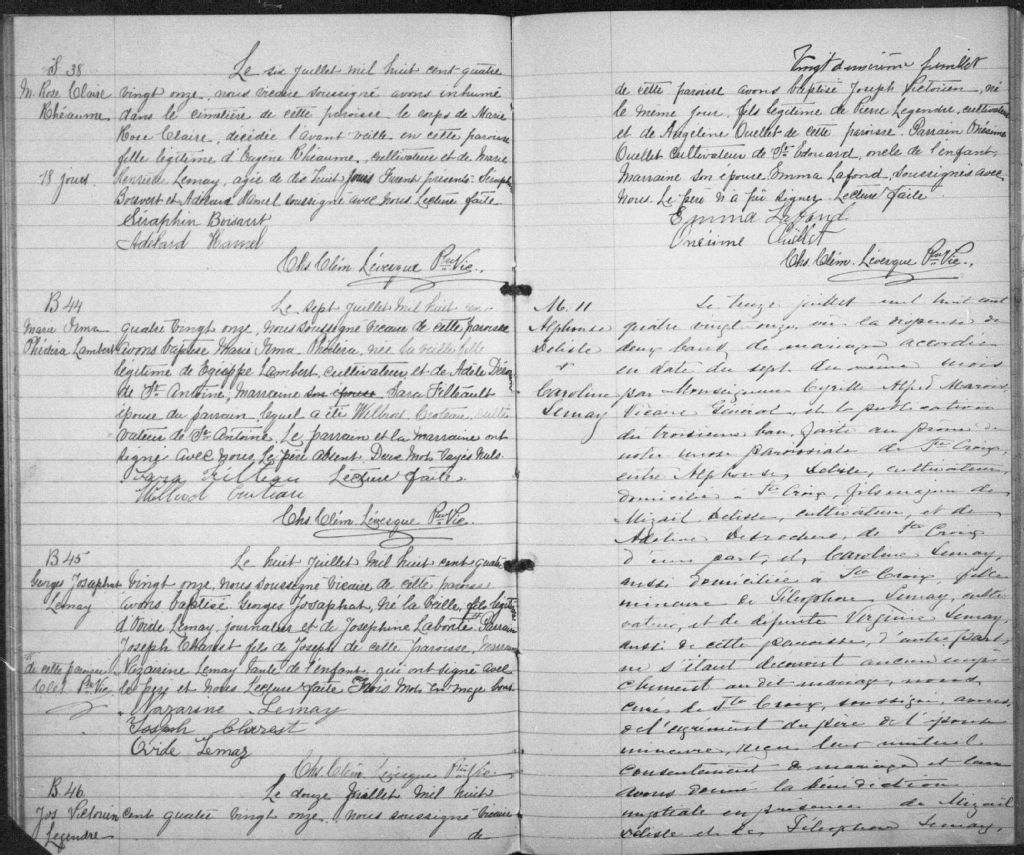 S 38
M. Rose Claire
Rhéaume
18 jours.
Le six juillet mil huit cent quatre
vingt onze, nous vicaire soussigné avons inhumé
dans le cimetière de cette paroisse le corps de Marie
Rose Claire, décédée l'avant veille, en cette paroisse
fille légitime d'Eugène Rhéaume, cultivateur et de Marie
Henriette Lemay, agée de dix huit jours. Furent présents
Boisvert et Adelard Hamel soussigné avec nous Lecture faite
Séraphin Boisvert
Adélard Hamel
Chs Clém. Lévesque Ptre Vic.
B 44
Marie Irma
Lambert
Le sept juillet mil huit cent
quatre vingt onze, nous soussigné vicaire de cette paroisse
avons baptisé Marie Irma née la veille, fille
légitime de Lambert, cultivateur et de Adèle
de St. Antoine, Marraine son épouse Sara
épouse du parrain, lequel a été Wilbrod Croteau, culti
vateur de St Antoine. Le parrain et la marraine ont
signé avec nous. Le père absent. Deux mots rayés nuls.
Lecture faite
Chs. Clém. Lévesque Ptre Vic.
B 45
Georges Josaphat
Lemay
de cette paroisse
Ptre Vic
Le huit juillet mil huit cent quatre
vingt onze, nous soussigné vicaire de cette paroisse
avons baptisé Georges Josaphat, né la veille, fils légitime
d'Ovide Lemay, journalier et de Josephine Laberté Parrain
Joseph Charest fils de Joseph de cette paroisse, Marraine
Nazarine Lemay tante de l'enfant, qui ont signé avec
le père et nous Lecture faite Trois mots en marge bons
Nazarine Lemay
Joseph Charest
Ovide Lemay
Chs. Clém. Lévesque Ptre Vic.
B 46
Jos Victorien
Legendre
Le douze juillet mil huit
cent quatre vingt onze, nous soussigné vicaire
de
Vingt deuxième feuillet
de cette paroisse avons baptisé Joseph Victorien, né
le même jour, fils légitime de Pierre Legendre, cultivateur
et de Angeline Ouellet de cette paroisse. Parrain Onésime
Ouellet cultivateur de St. Edouard, oncle de l'enfant
Marraine son épouse Emma Lafond, soussignés avec
nous. Le père n'a pu signer. Lecture faite
Emma Lafond
Onésime Ouellet
Chs. Clém. Lévesque Ptre Vic.
M. 11
Alphonse
Delisle
+
Caroline
Lemay
Le treize juillet mil huit cent
quatre vingt onze, vu la dispense de
deux bans de mariage accordée
en date du sept du même mois
par Monseigneur Cyrille Alfred Marois
Vicaire Général, et la publication
du troisième ban faite au prône de
notre messe paroissiale de Ste Croix,
entre Alphonse Delisle, cultivateur,
domicilié à Ste Croix, fils majeur de
Delisle, cultivateur, et de
Desrochers, de Ste Croix
d'une part, et Caroline Lemay,
aussi domiciliée à Ste Croix, fille
mineure de Télesphore Lemay, culti
vateur, et de défunte Virginie Lemay,
aussi de cette paroisse, d'autre part,
ne s'étant découvert aucun empê
chement au dit mariage, nous,
curé de Ste Croix, soussigné, avons,
de l'agrément du père de l'épouse
mineure, reçu leur mutuel
consentement de mariage et leur
avons donné la bénédiction
nuptiale en présence de
Delisle et de Télesphore Lemay,